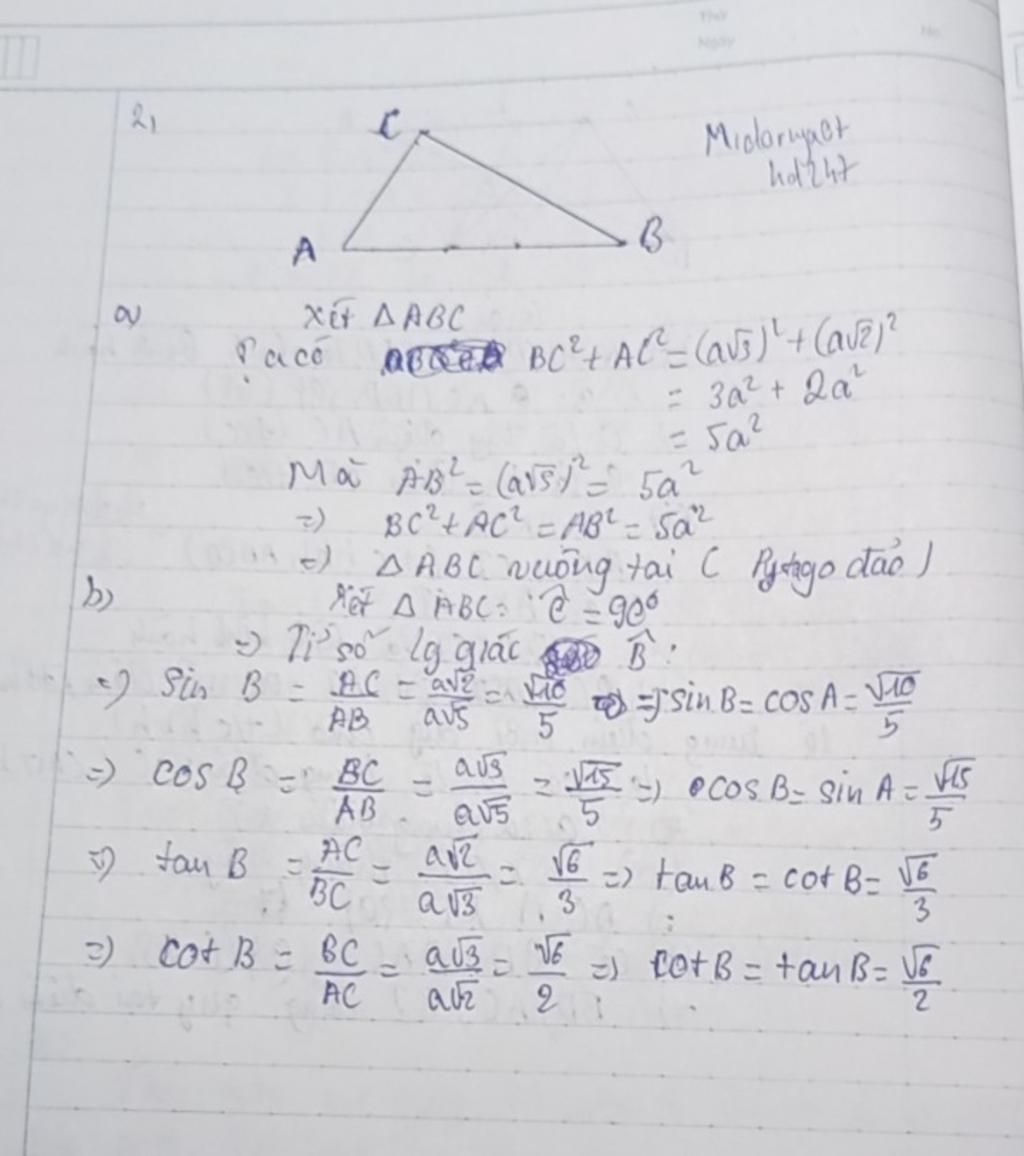 Thứ
Ngày
No.
2,
C
Midoriyact
hd247
A B
a) Xét △ABC
Ta có BC² + AC² = (a√3)² + (a√2)²
= 3a² + 2a²
= 5a²
Mà AB² = (a√5)² = 5a²
=> BC² + AC² = AB² = 5a²
=> △ABC vuông tại C Pytago đảo)
b) Xét △ABC: Ĉ = 90°
=> Tỉ số lg giác B̂:
=> Sin B = AC/AB = a√2/a√5 = √10/5 => sin B = cos A = √10/5
=> cos B = BC/AB = a√3/a√5 = √15/5 => cos B = sin A = √15/5
=> tan B = AC/BC = a√2/a√3 = √6/3 => tan B = cot B = √6/3
=> cot B = BC/AC = a√3/a√2 = √6/2 => cot B = tan B = √6/2